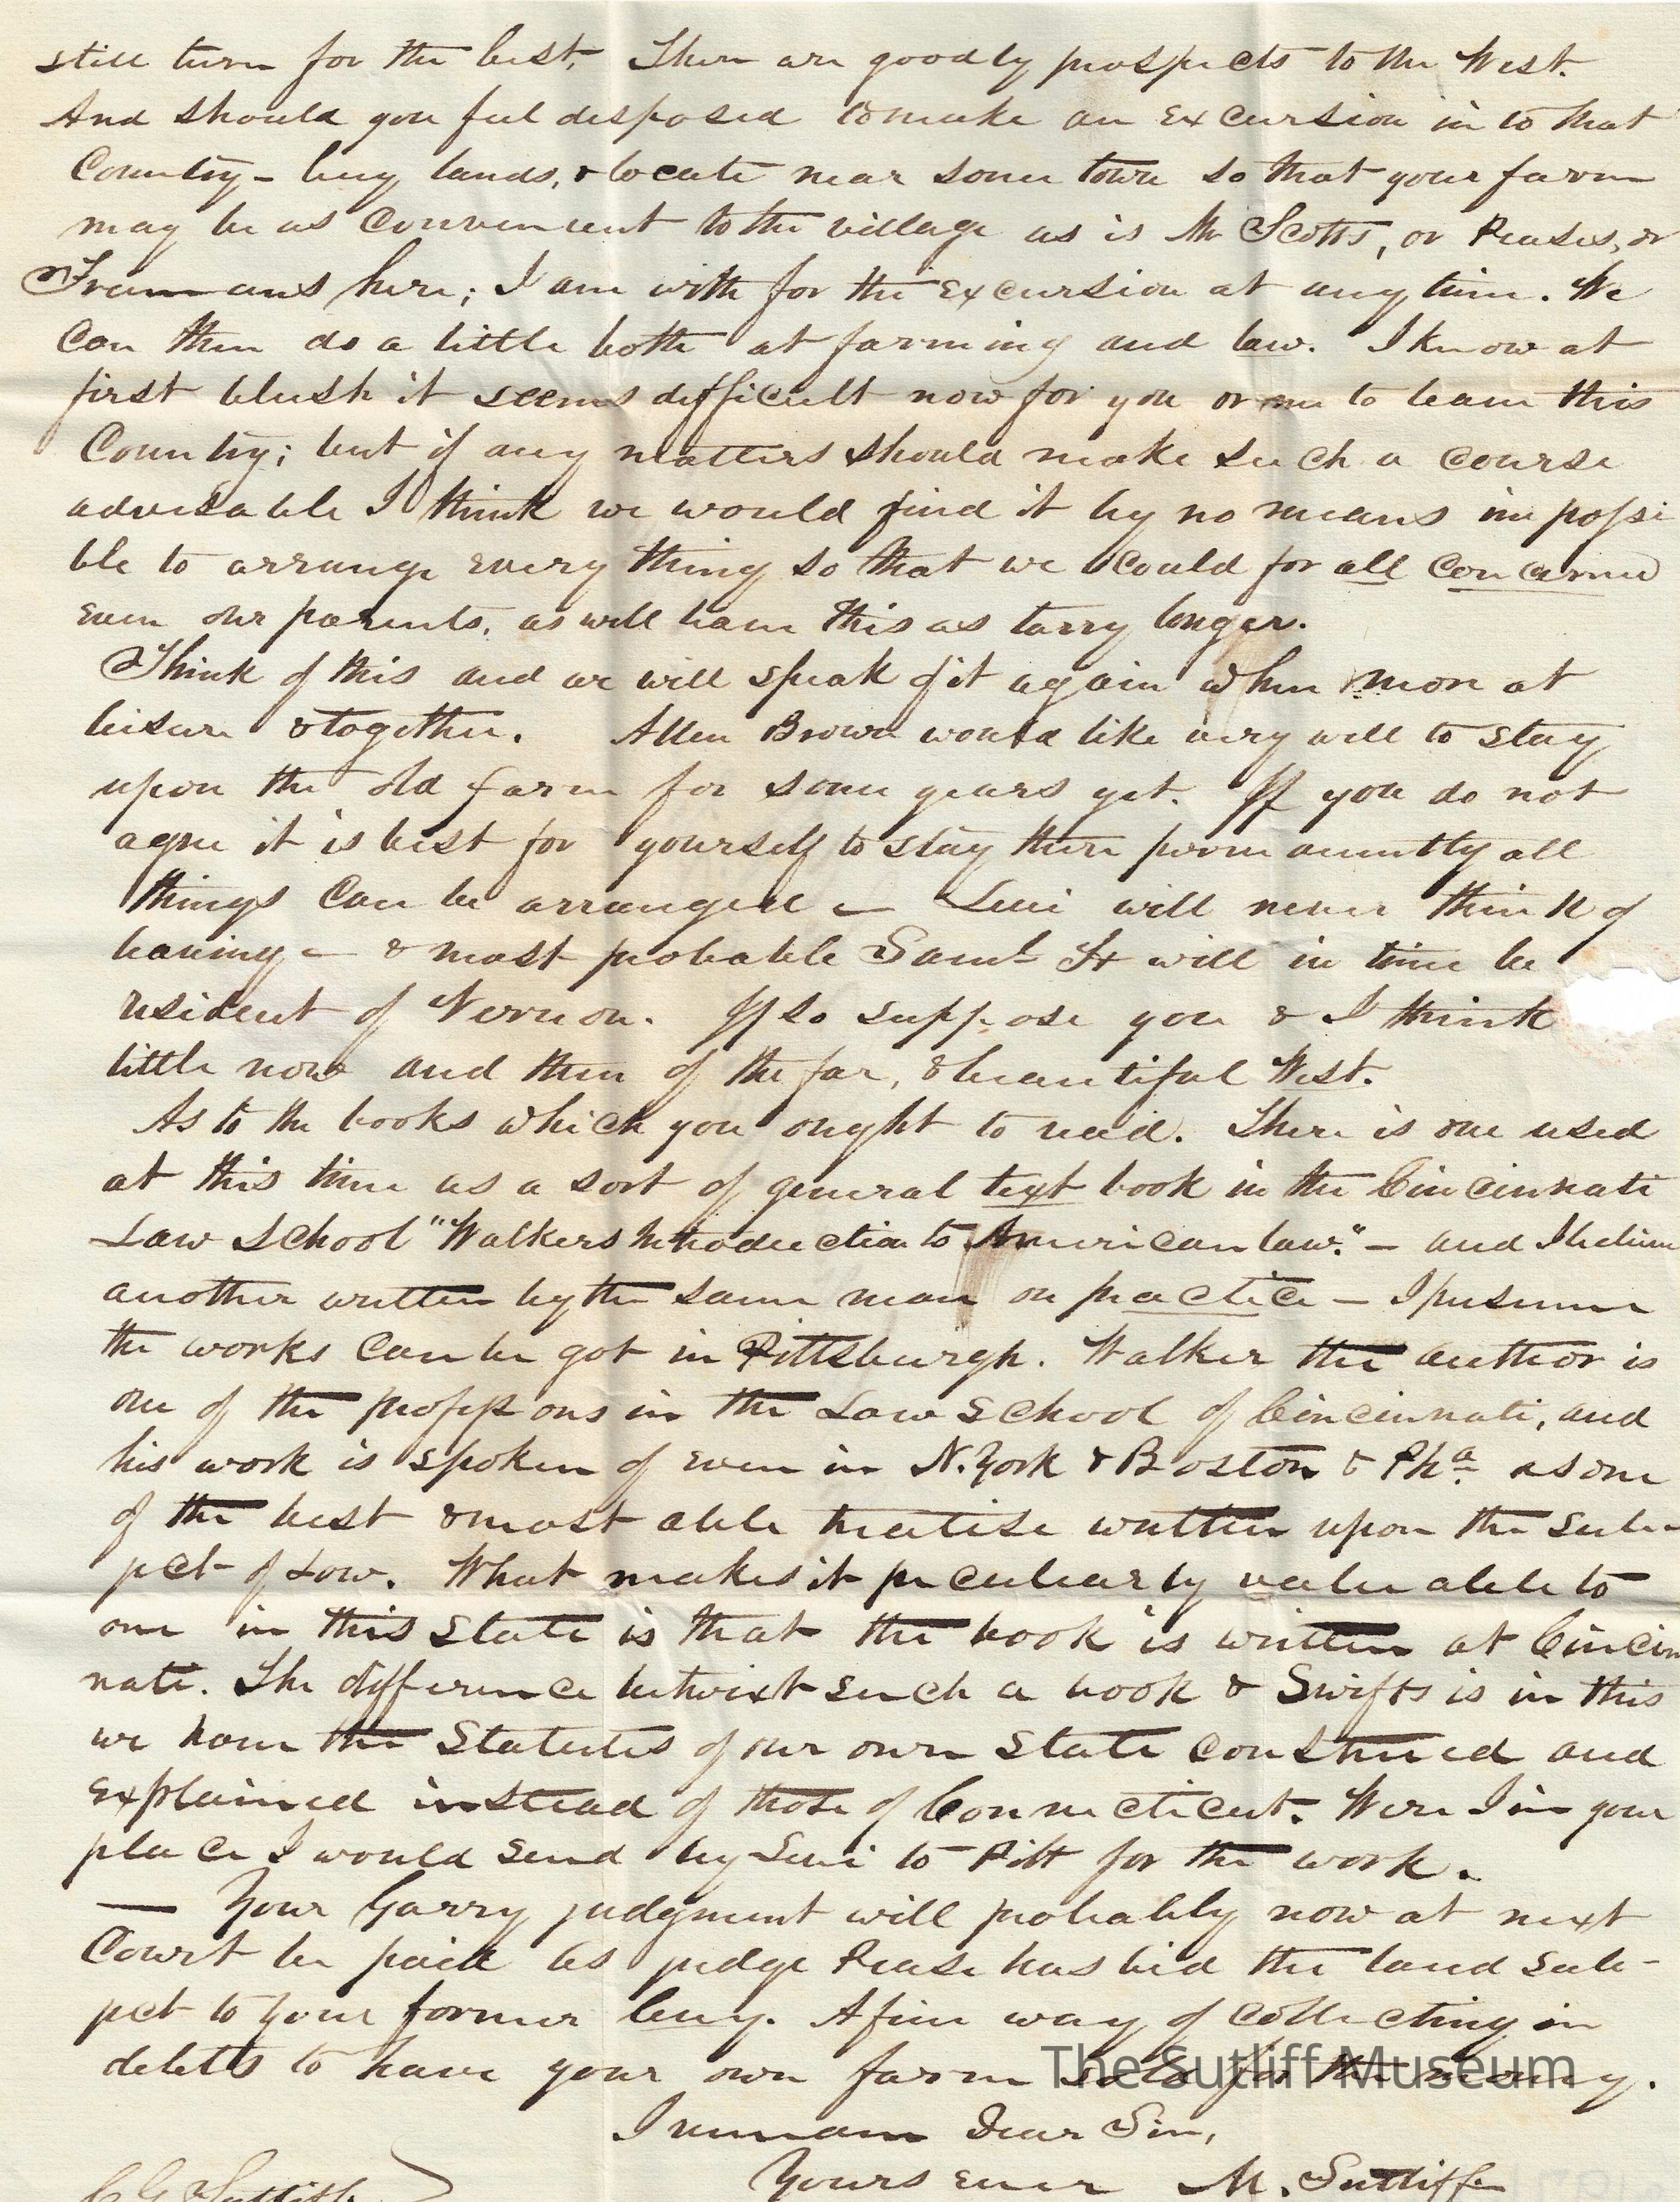 still turn for the best. There are goodly prospects to the West.
And should you feel disposed to make an Excursion in to that
Country - buy lands, & locate near some town so that your farm
may be as Convenient to the village as is Mr Scotts, or Peases, or
Freemans here; I am with for the Excursion at any time. We
Can then do a little both at farming and law. I know at
first blush it seems difficult now for you or me to leave this
Country; but if any matters should make such a course
advisable I think we would find it by no means impossi
ble to arrange every thing so that we could for all concerned
even our parents, as well leave this as tarry longer.
Think of this and we will speak of it again when more at
leisure & together. Allen Brown would like very well to stay
upon the old farm for some years yet. If you do not
agree it is best for yourself to stay there permanently all
things Can be arranged - Levi will never think of
leaving - & most probable Saml Jr will in time be
resident of Vernon. If so suppose you & I think
little now and then of the far, & beautiful West.
As to the books which you ought to read. There is one used
at this time as a sort of general text book in the Cincinnati
Law School "Walkers Introduction to American law." - and I believe
another written by the same man on practice - I presume
the works Can be got in Pittsburgh. Walker the author is
one of the professors in the Law School of Cincinnati, and
his work is spoken of even in N. York & Boston & Pha. as one
of the best & most able treatise written upon the sub-
ject of Law. What makes it peculiarly valuable to
one in this State is that the book is written at Cincin
nati. The difference betwixt such a book & Swifts is in this
we have the Statutes of our own State construed and
Explained instead of those of Connecticut. Were I in your
place I would send by Levi to Pitt for the work.
— Your Garry judgment will probably now at next
Court be paid as judge Pease has bid the land sub-
ject to your former levy. A fine way of collecting in
debts to have your own farm sold for the money.
The Sutliff Museum
I remain Dear Sir,
Yours ever M. Sutliff
C G Sutliff